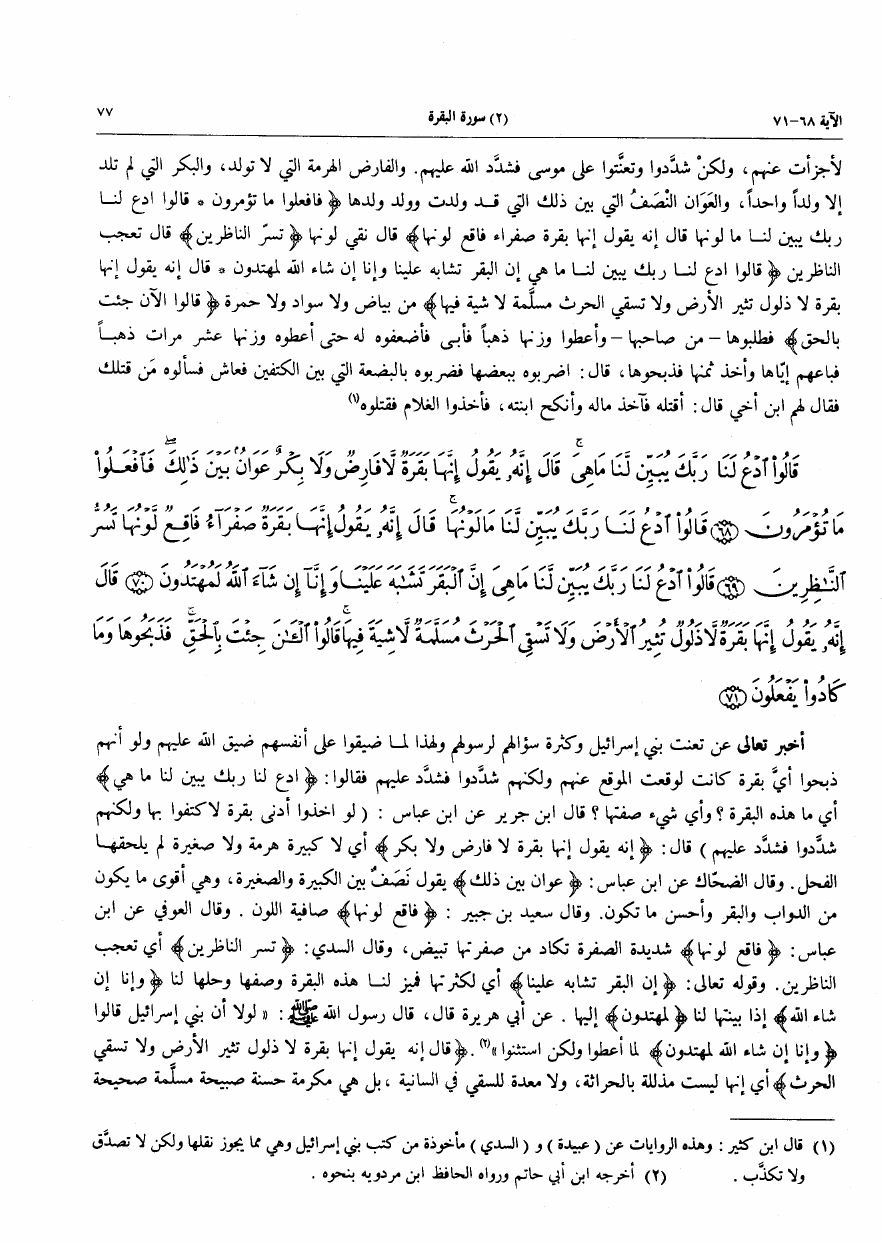 الآية ٦٨-٧١ (٢) سورة البقرة ٧٧
لأجزأت عنهم، ولكنْ شدَّدوا وتعنَّتوا على موسى فشدَّد الله عليهم. والفارض الهرمة التي لا تولد، والبكر التي لم تلد
إلا ولداً واحداً، والعَوَان النْصَفُ التي بين ذلك التي قد ولدت وولد ولدها ﴿ فافعلوا ما تؤمرون * قالوا ادع لنا
ربك يبين لنا ما لونها قال إنه يقول إنها بقرة صفراء فاقع لونها﴾ قال نقي لونها ﴿ تسرّ الناظرين﴾ قال تعجب
الناظرين ﴿ قالوا ادع لنا ربك يبين لنا ما هي إن البقر تشابه علينا وإنا إن شاء الله لمهتدون * قال إنه يقول إنها
بقرة لا ذلول تثير الأرض ولا تسقي الحرث مسلَّمة لا شية فيها﴾ من بياض ولا سواد ولا حمرة ﴿ قالوا الآن جئت
بالحق﴾ فطلبوها – من صاحبها – وأعطوا وزنها ذهباً فأبى فأضعفوه له حتى أعطوه وزنها عشر مرات ذهباً
فباعهم إيّاها وأخذ ثمنها فذبحوها، قال: اضربوه ببعضها فضربوه بالبضعة التي بين الكتفين فعاش فسألوه مَن قتلك
فقال لهم ابن أخي قال: أقتله فآخذ ماله وأنكح ابنته، فأخذوا الغلام فقتلوه(١)
قَالُواْ ٱدْعُ لَنَا رَبَّكَ يُبَيِّن لَّنَا مَاهِىَ ۚ قَالَ إِنَّهُۥ يَقُولُ إِنَّهَا بَقَرَةٌ لَّا فَارِضٌ وَلَا بِكْرٌ عَوَانٌۢ بَيْنَ ذَٰلِكَ ۖ فَٱفْعَلُواْ
مَا تُؤْمَرُونَ ٦٨ قَالُواْ ٱدْعُ لَنَا رَبَّكَ يُبَيِّن لَّنَا مَا لَوْنُهَا ۚ قَالَ إِنَّهُۥ يَقُولُ إِنَّهَا بَقَرَةٌ صَفْرَآءُ فَاقِعٌ لَّوْنُهَا تَسُرُّ
ٱلنَّٰظِرِينَ ٦٩ قَالُواْ ٱدْعُ لَنَا رَبَّكَ يُبَيِّن لَّنَا مَاهِىَ إِنَّ ٱلْبَقَرَ تَشَٰبَهَ عَلَيْنَا وَإِنَّآ إِن شَآءَ ٱللَّهُ لَمُهْتَدُونَ ٧٠ قَالَ
إِنَّهُۥ يَقُولُ إِنَّهَا بَقَرَةٌ لَّا ذَلُولٌ تُثِيرُ ٱلْأَرْضَ وَلَا تَسْقِى ٱلْحَرْثَ مُسَلَّمَةٌ لَّا شِيَةَ فِيهَا ۚ قَالُواْ ٱلْـَٰٔنَ جِئْتَ بِٱلْحَقِّ ۚ فَذَبَحُوهَا وَمَا
كَادُواْ يَفْعَلُونَ ٧١
أخبر تعالى عن تعنت بني إسرائيل وكثرة سؤالهم لرسولهم ولهذا لما ضيقوا على أنفسهم ضيق الله عليهم ولو أنهم
ذبحوا أيَّ بقرة كانت لوقعت الموقع عنهم ولكنهم شدَّدوا فشدَّد عليهم فقالوا: ﴿ ادع لنا ربك يبين لنا ما هي﴾
أي ما هذه البقرة ؟ وأي شيء صفتها ؟ قال ابن جرير عن ابن عباس : ( لو اخذوا أدنى بقرة لاكتفوا بها ولكنهم
شدَّدوا فشدَّد عليهم ) قال: ﴿ إنه يقول إنها بقرة لا فارض ولا بكر﴾ أي لا كبيرة هرمة ولا صغيرة لم يلحقها
الفحل. وقال الضحّاك عن ابن عباس: ﴿ عوان بين ذلك﴾ يقول نَصَفٌ بين الكبيرة والصغيرة، وهي أقوى ما يكون
من الدواب والبقر وأحسن ما تكون. وقال سعيد بن جبير : ﴿ فاقع لونها﴾ صافية اللون . وقال العوفي عن ابن
عباس: ﴿ فاقع لونها﴾ شديدة الصفرة تكاد من صفرتها تبيض، وقال السدي: ﴿ تسر الناظرين﴾ أي تعجب
الناظرين. وقوله تعالى: ﴿ إن البقر تشابه علينا﴾ أي لكثرتها فميز لنا هذه البقرة وصفها وحلها لنا ﴿ وإنا إن
شاء الله﴾ إذا بينتها لنا ﴿ لمهتدون﴾ إليها . عن أبي هريرة قال، قال رسول الله ﷺ: « لولا أن بني إسرائيل قالوا
﴿ وإنا إن شاء الله لمهتدون﴾ لما أعطوا ولكن استثنوا »(٢). ﴿ قال إنه يقول إنها بقرة لا ذلول تثير الأرض ولا تسقي
الحرث﴾ أي إنها ليست مذللة بالحراثة، ولا معدة للسقي في السانية ، بل هي مكرمة حسنة صبيحة مسلَّمة صحيحة
(١) قال ابن كثير : وهذه الروايات عن ( عبيدة ) و ( السدي ) مأخوذة من كتب بني إسرائيل وهي مما يجوز نقلها ولكن لا تصدَّق
ولا تكذَّب . (٢) أخرجه ابن أبي حاتم ورواه الحافظ ابن مردويه بنحوه .